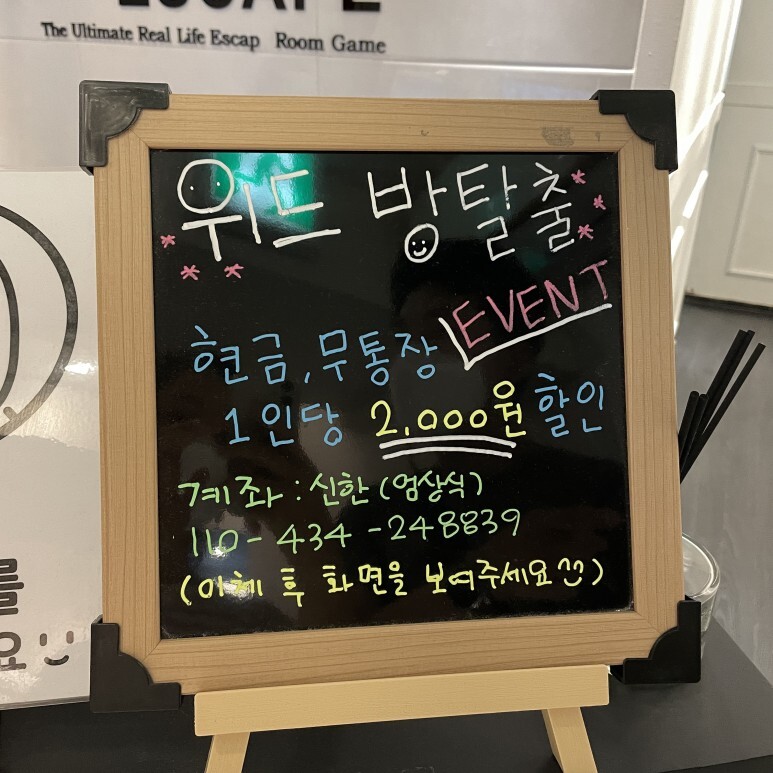 The Ultimate Real Life Escap Room Game
위드 방탈출
EVENT
현금, 무통장
1인당 2,000원 할인
계좌 : 신한 (엄상식)
110-434-248839
(이체 후 화면을 보여주세요)